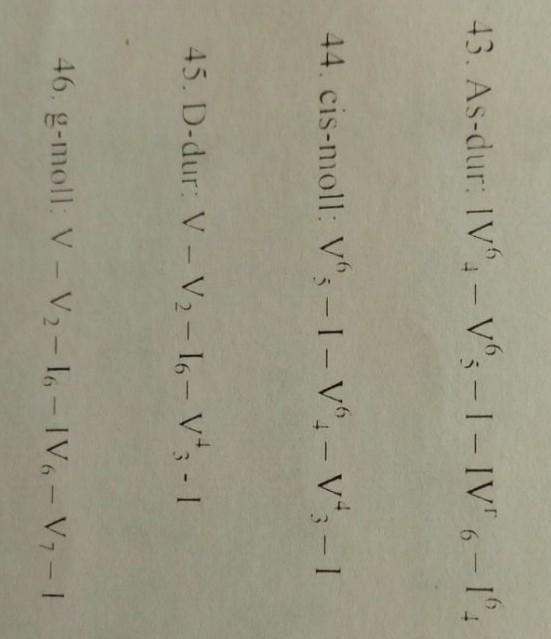 43. As-dur: IV⁶₄ – V⁶₅ – I – IVʳ₆ – I⁶₄
44. cis-moll: V⁶₅ – I – V⁶₄ – V⁴₃ – I
45. D-dur: V – V₂ – I₆ – V⁴₃ - I
46. g-moll: V – V₂ – I₆ – IV₆ – V₇ – I